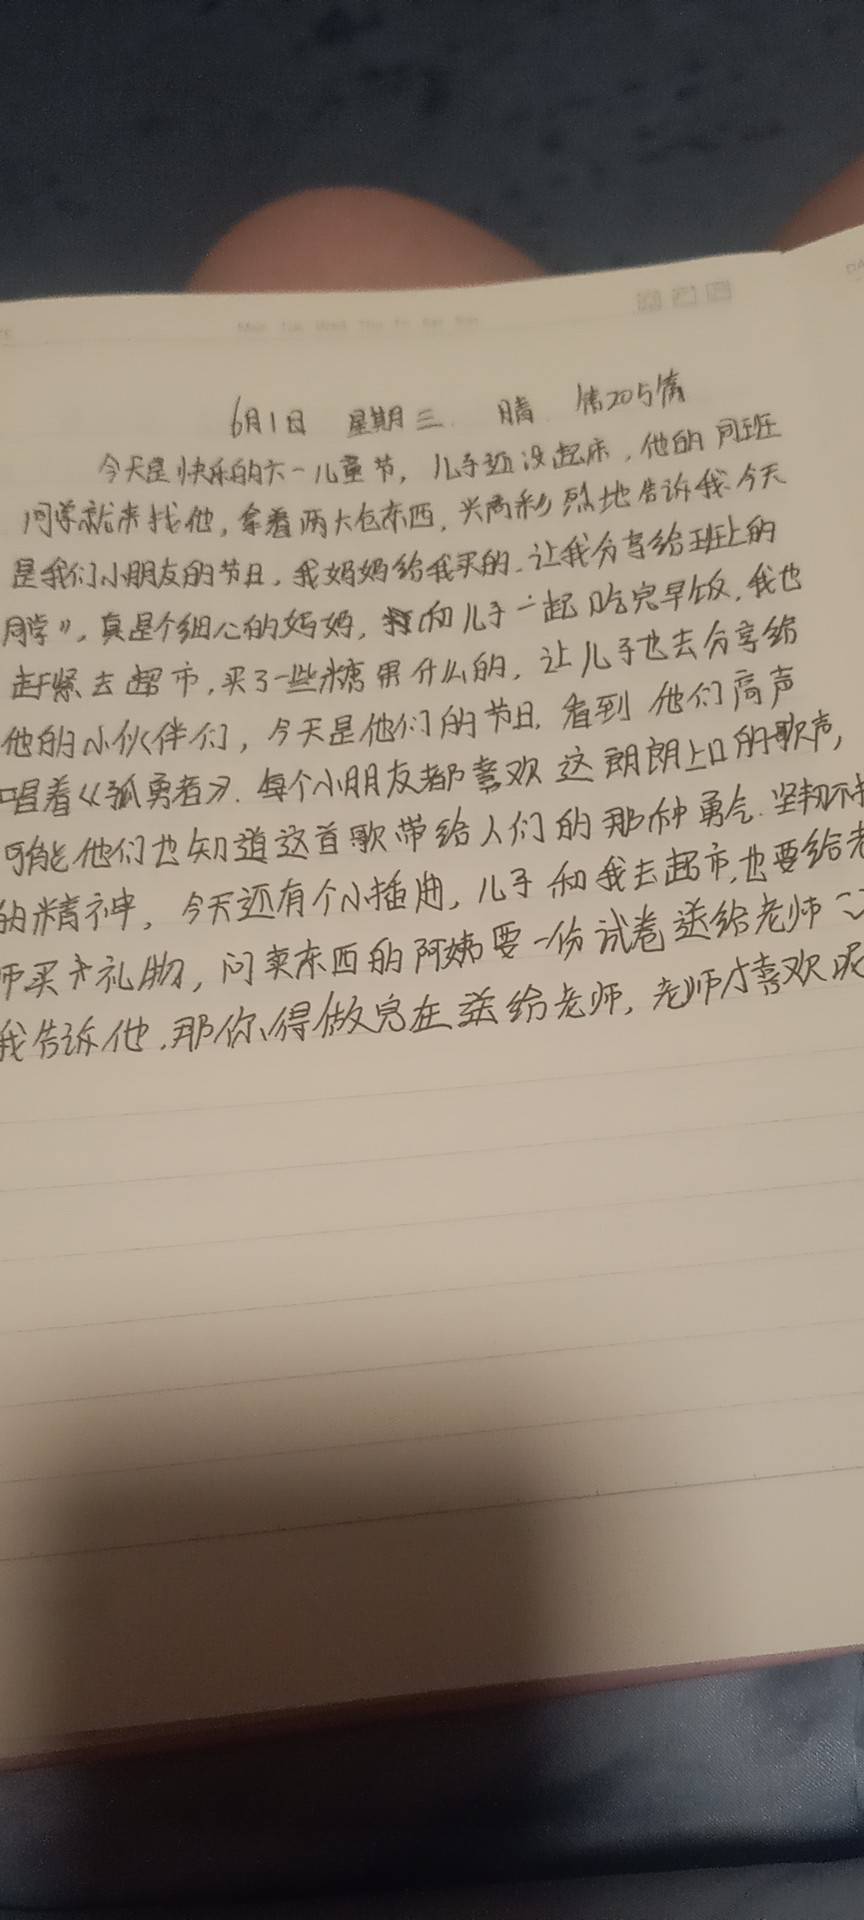 Mon Tue Wed Thu Fri Sat Sun
6月1日 星期三 晴 第205篇
今天是快乐的六一儿童节，儿子还没起床，他的同班
同学就来找他，拿着两大包东西，兴高彩烈地告诉我今天
是我们小朋友的节日，我妈妈给我买的，让我分享给班上的
同学"，真是个细心的妈妈，和儿子一起吃完早饭，我也
赶紧去超市，买了一些糖果什么的，让儿子也去分享给
他的小伙伴们，今天是他们的节日，看到他们高声
唱着《孤勇者》．每个小朋友都喜欢这朗朗上口的歌声，
可能他们也知道这首歌带给人们的那种勇气．坚韧不
的精神，今天还有个小插曲，儿子和我去超市，也要给老
师买个礼物，问卖东西的阿姨要一份试卷送给老师
我告诉他，那你得做完在送给老师，老师才喜欢呢